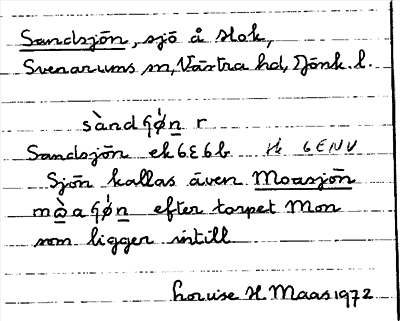 Sandsjön, sjö å Stok,
Svenarums sn, Västra hd, Jönk. l.
sàndʃǿn r
Sandsjön ek 6E6b Hk 6ENV
Sjön kallas även Moasjön
mɷ̀aʃǿn efter torpet Mon
som ligger intill
Louise H. Maas 1972